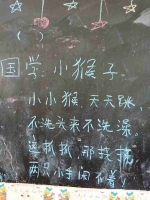 ( )
国学 小猴子
小小猴 天天跳,
不洗头来不洗澡.
这抓抓,那挠挠
两只小手闲不着.